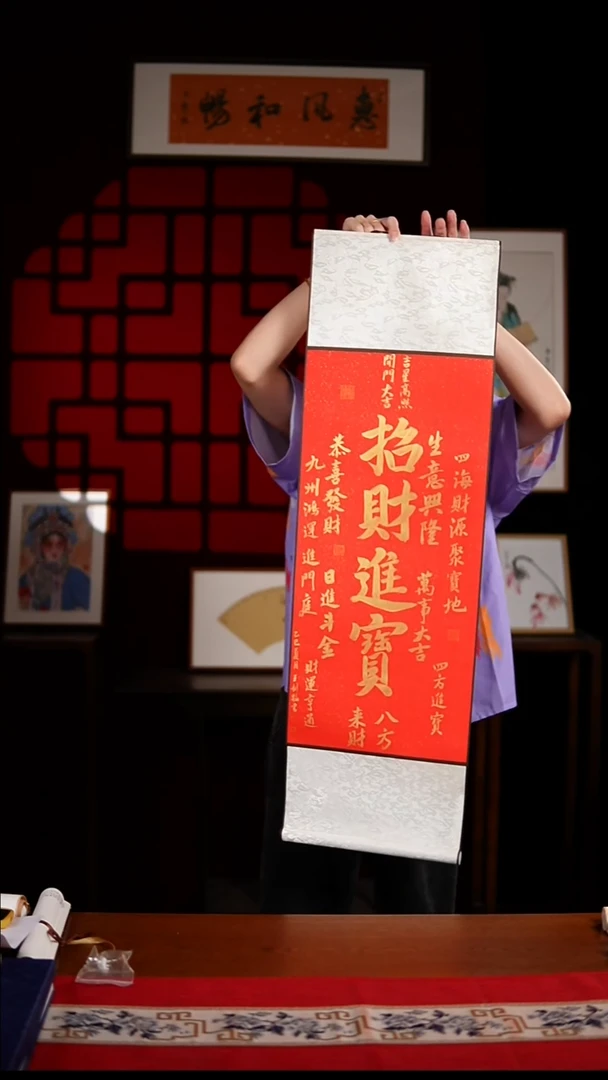 惠風和暢
吉星高照
開門大吉
招財進寶
四海財源聚寶地
生意興隆
萬事大吉
四方進寶
恭喜發財
日進斗金
九州鴻運進門庭
財運亨通
八方
来財